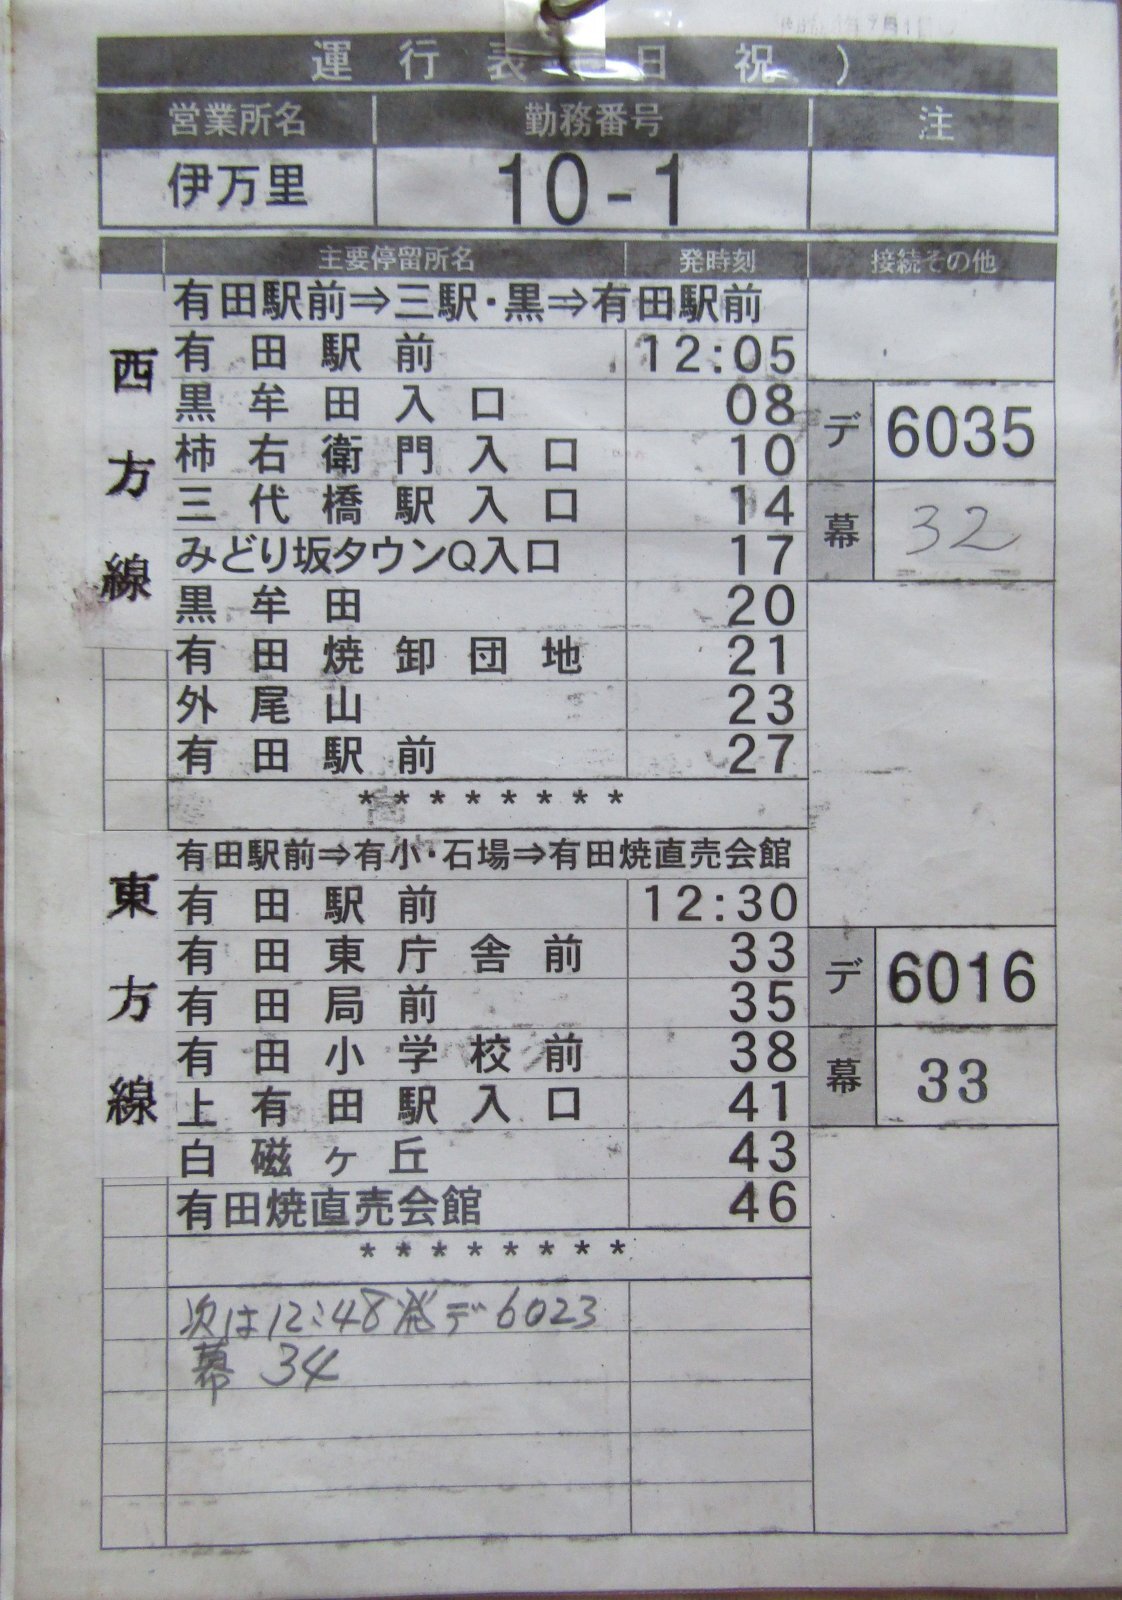 運行表 日祝)
営業所名 勤務番号 注
伊万里 10-1
主要停留所名 発時刻 接続その他
西方線
有田駅前⇒三駅・黒⇒有田駅前
有田駅前 12:05
黒牟田入口 08
デ 6035
柿右衛門入口 10
三代橋駅入口 14
幕 32
みどり坂タウンQ入口 17
黒牟田 20
有田焼卸団地 21
外尾山 23
有田駅前 27
********
東方線
有田駅前⇒有小・石場⇒有田焼直売会館
有田駅前 12:30
有田東庁舎前 33
デ 6016
有田局前 35
有田小学校前 38
幕 33
上有田駅入口 41
白磁ヶ丘 43
有田焼直売会館 46
********
次は12:48発デ6023
幕 34